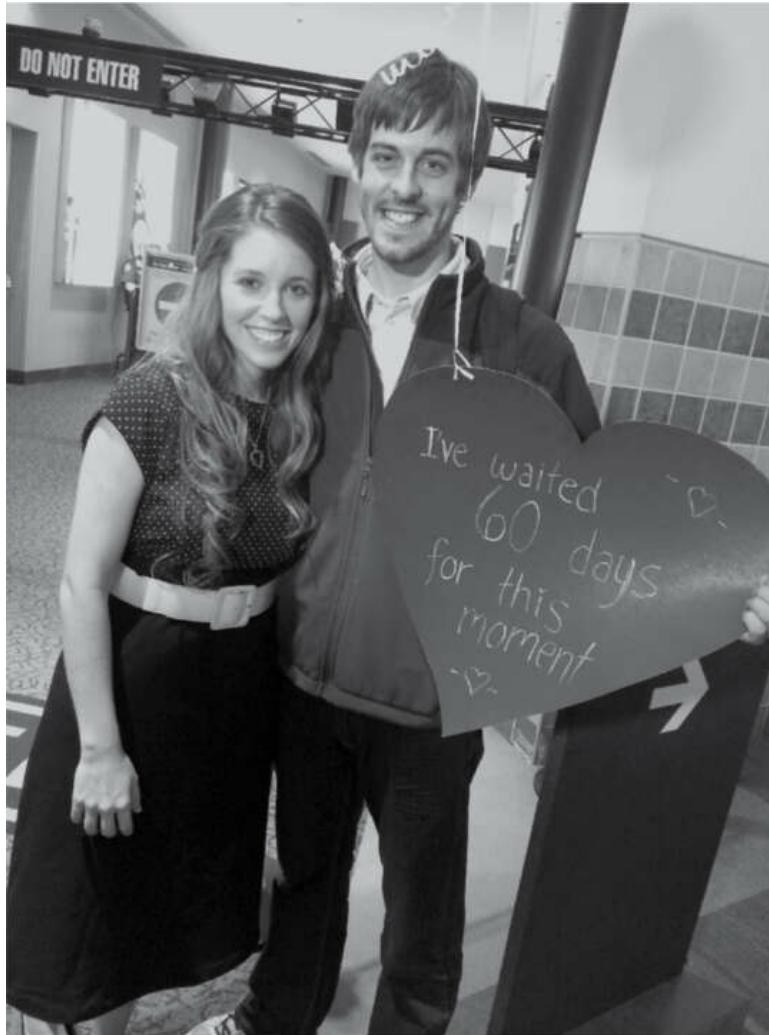 DO NOT ENTER
I've waited
60 days
for this
moment